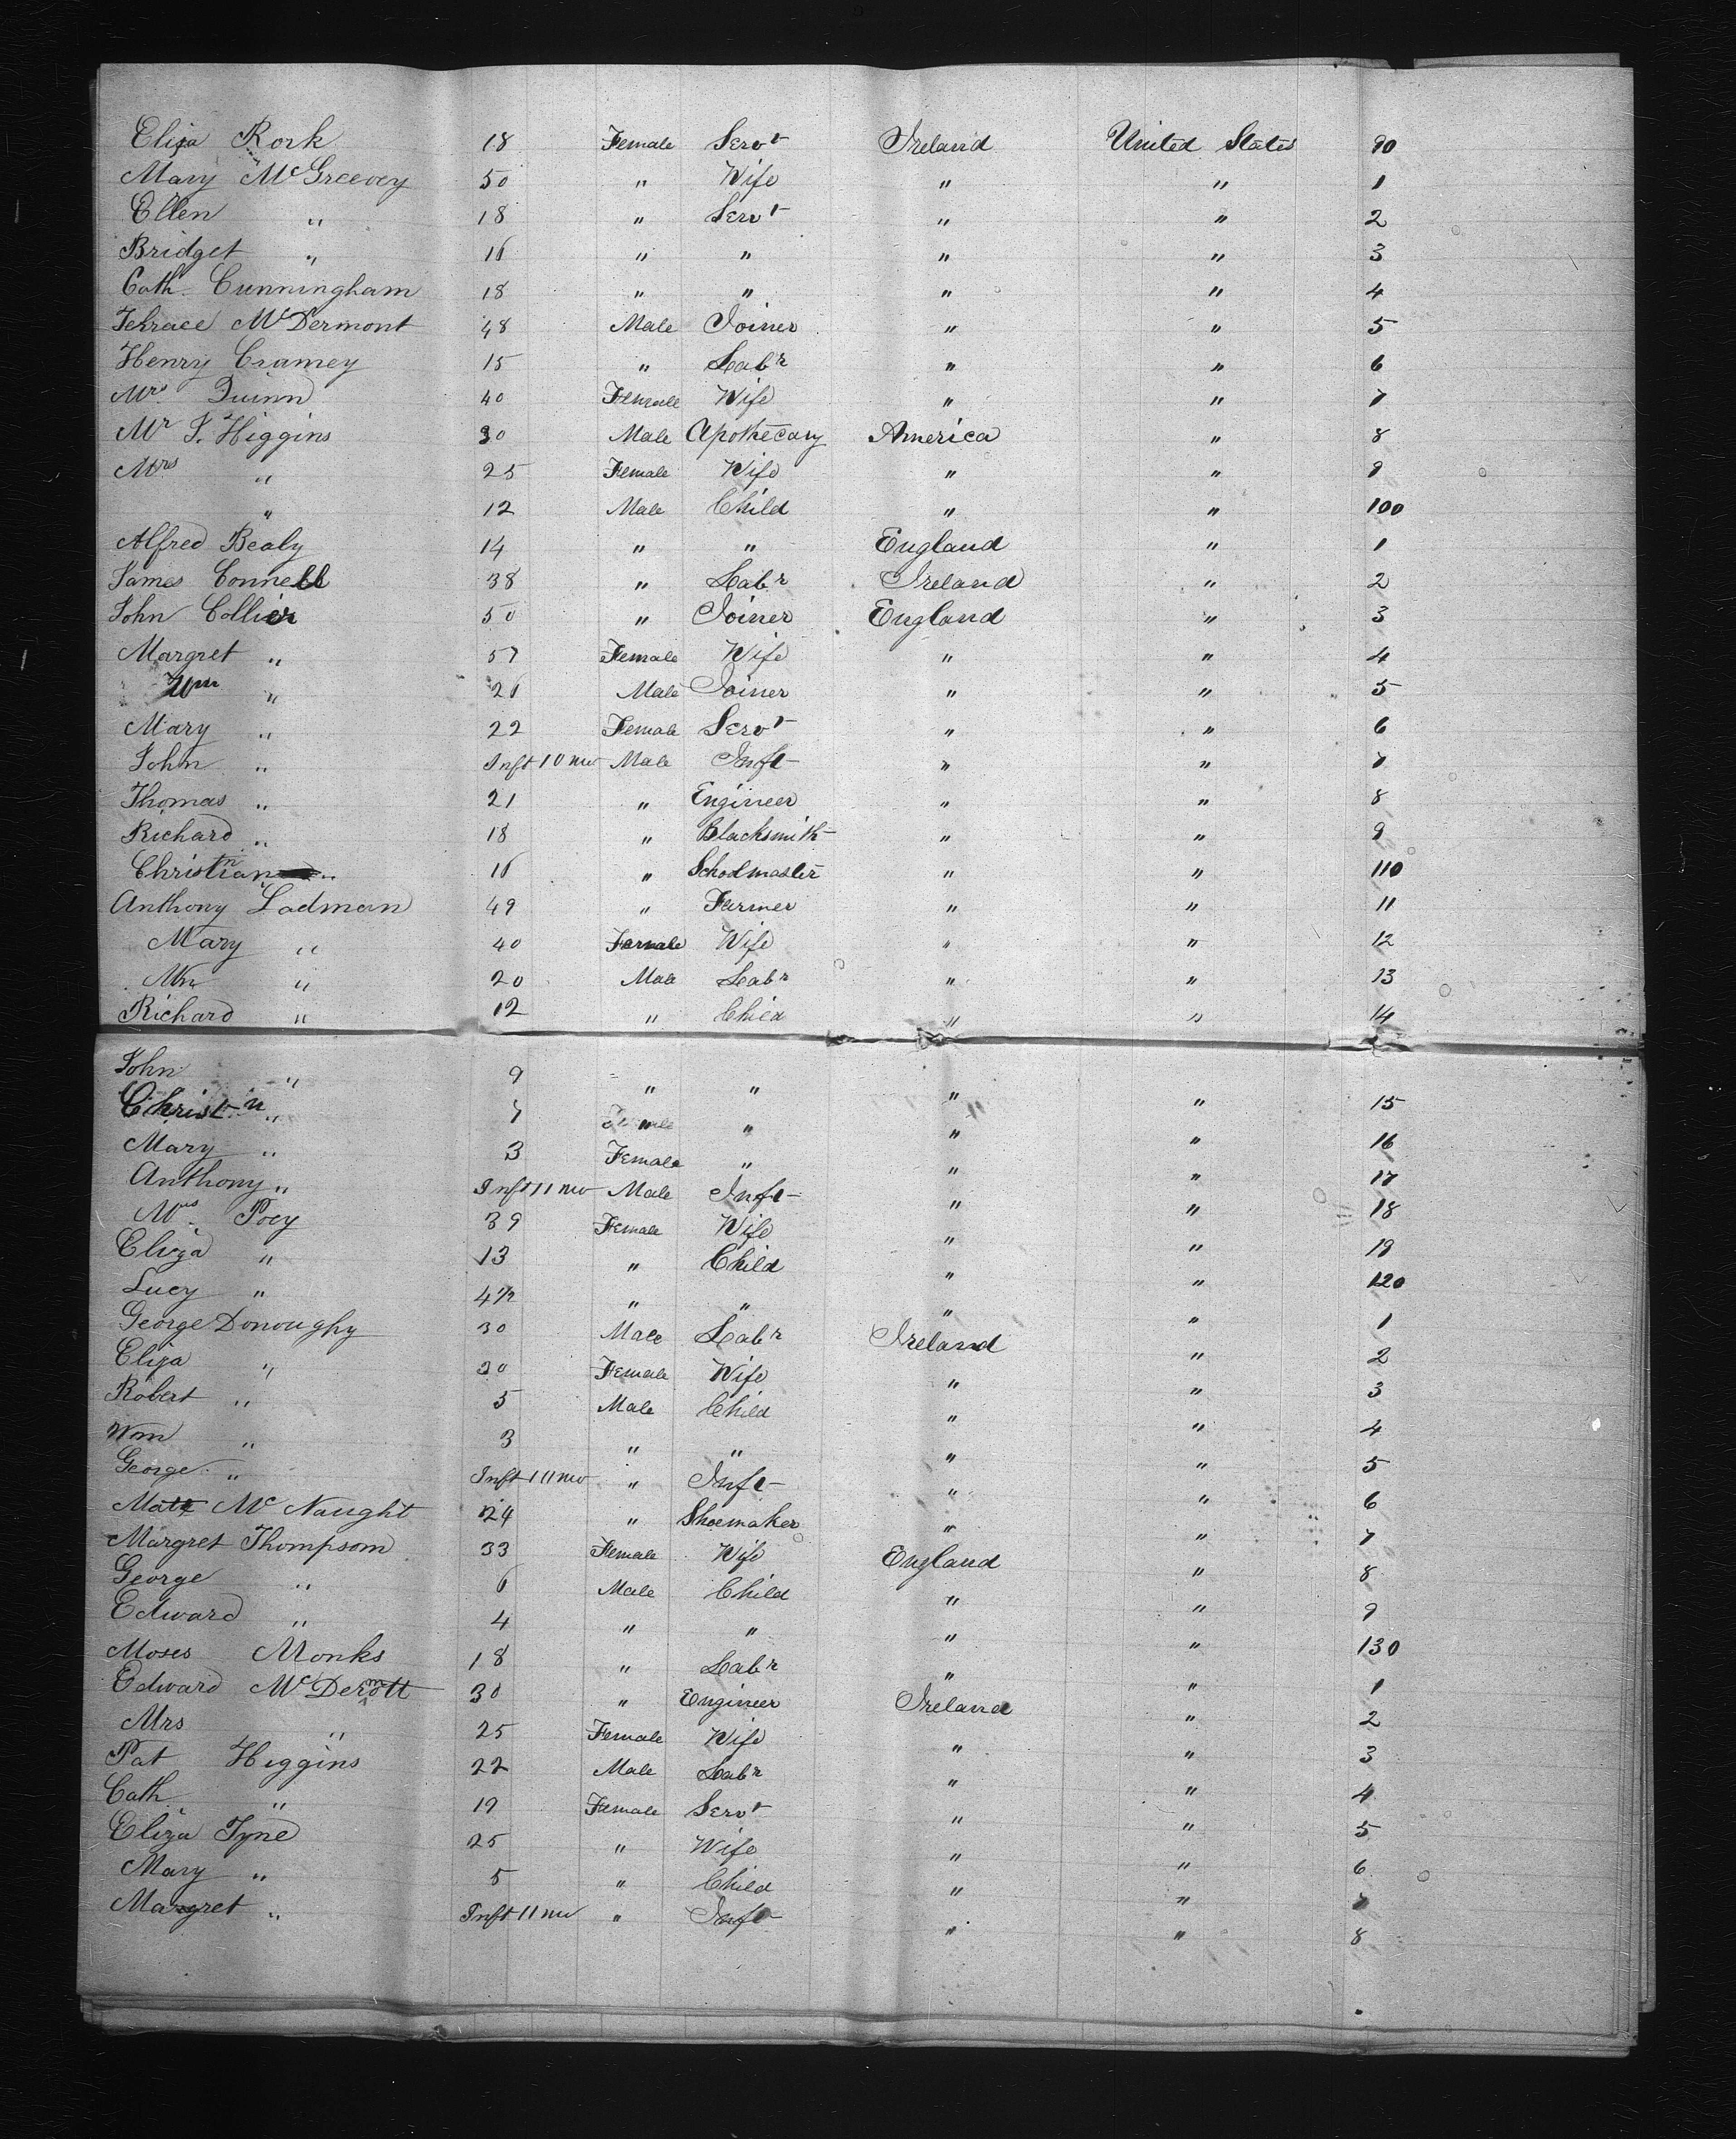 Eliza Rork 18 Female Servt Ireland United States 90
Mary McGreevey 50 " Wife " " 1
Ellen " 18 " Servt " " 2
Bridget " 16 " " " " 3
Cath. Cunningham 18 " " " " 4
Terrace McDermont 48 Male Joiner " " 5
Henry Cramey 15 " Labr " " 6
Mrs. Quinn 40 Female Wife " " 7
Mr J. Higgins 30 Male Apothecary America " 8
Mrs " 25 Female Wife " " 9
" 12 Male Child " " 100
Alfred Bealy 14 " " England " 1
James Connell 38 " Labr Ireland " 2
John Collier 50 " Joiner England " 3
Margret " 57 Female Wife " " 4
Wm " 26 Male Joiner " " 5
Mary " 22 Female Servt " " 6
John " Inft 10 mo Male Inft " " 7
Thomas " 21 " Engineer " " 8
Richard " 18 " Blacksmith " " 9
Christian " 16 " Schoolmaster " " 110
Anthony Ladman 49 " Farmer " " 11
Mary " 40 Female Wife " " 12
Wm " 20 Male Labr " " 13
Richard " 12 " Child " " 14
John " 9 " " " " 15
Christn " 7 " " " " 16
Mary " 3 Female " " " 17
Anthony " Inft 11 mo Male Inft " " 18
Mrs Poey 39 Female Wife " " 19
Eliza " 13 " Child " " 120
Lucy " 4½ " " " " 1
George Donoughy 30 Male Labr Ireland " 2
Eliza " 30 Female Wife " " 3
Robert " 5 Male Child " " 4
Wm " 3 " " " " 5
George " Inft 11 mo " Inft " " 6
Matt McNaught 24 " Shoemaker " " 7
Margret Thompsom 33 Female Wife England " 8
George " 6 Male Child " " 9
Edward " 4 " " " " 130
Moses Monks 18 " Labr " " 1
Edward McDermott 30 " Engineer Ireland " 2
Mrs " 25 Female Wife " " 3
Pat Higgins 22 Male Labr " " 4
Cath " 19 Female Servt " " 5
Eliza Tyne 25 " Wife " " 6
Mary " 5 " Child " " 7
Margret " Inft 11 mo " Inft " " 8